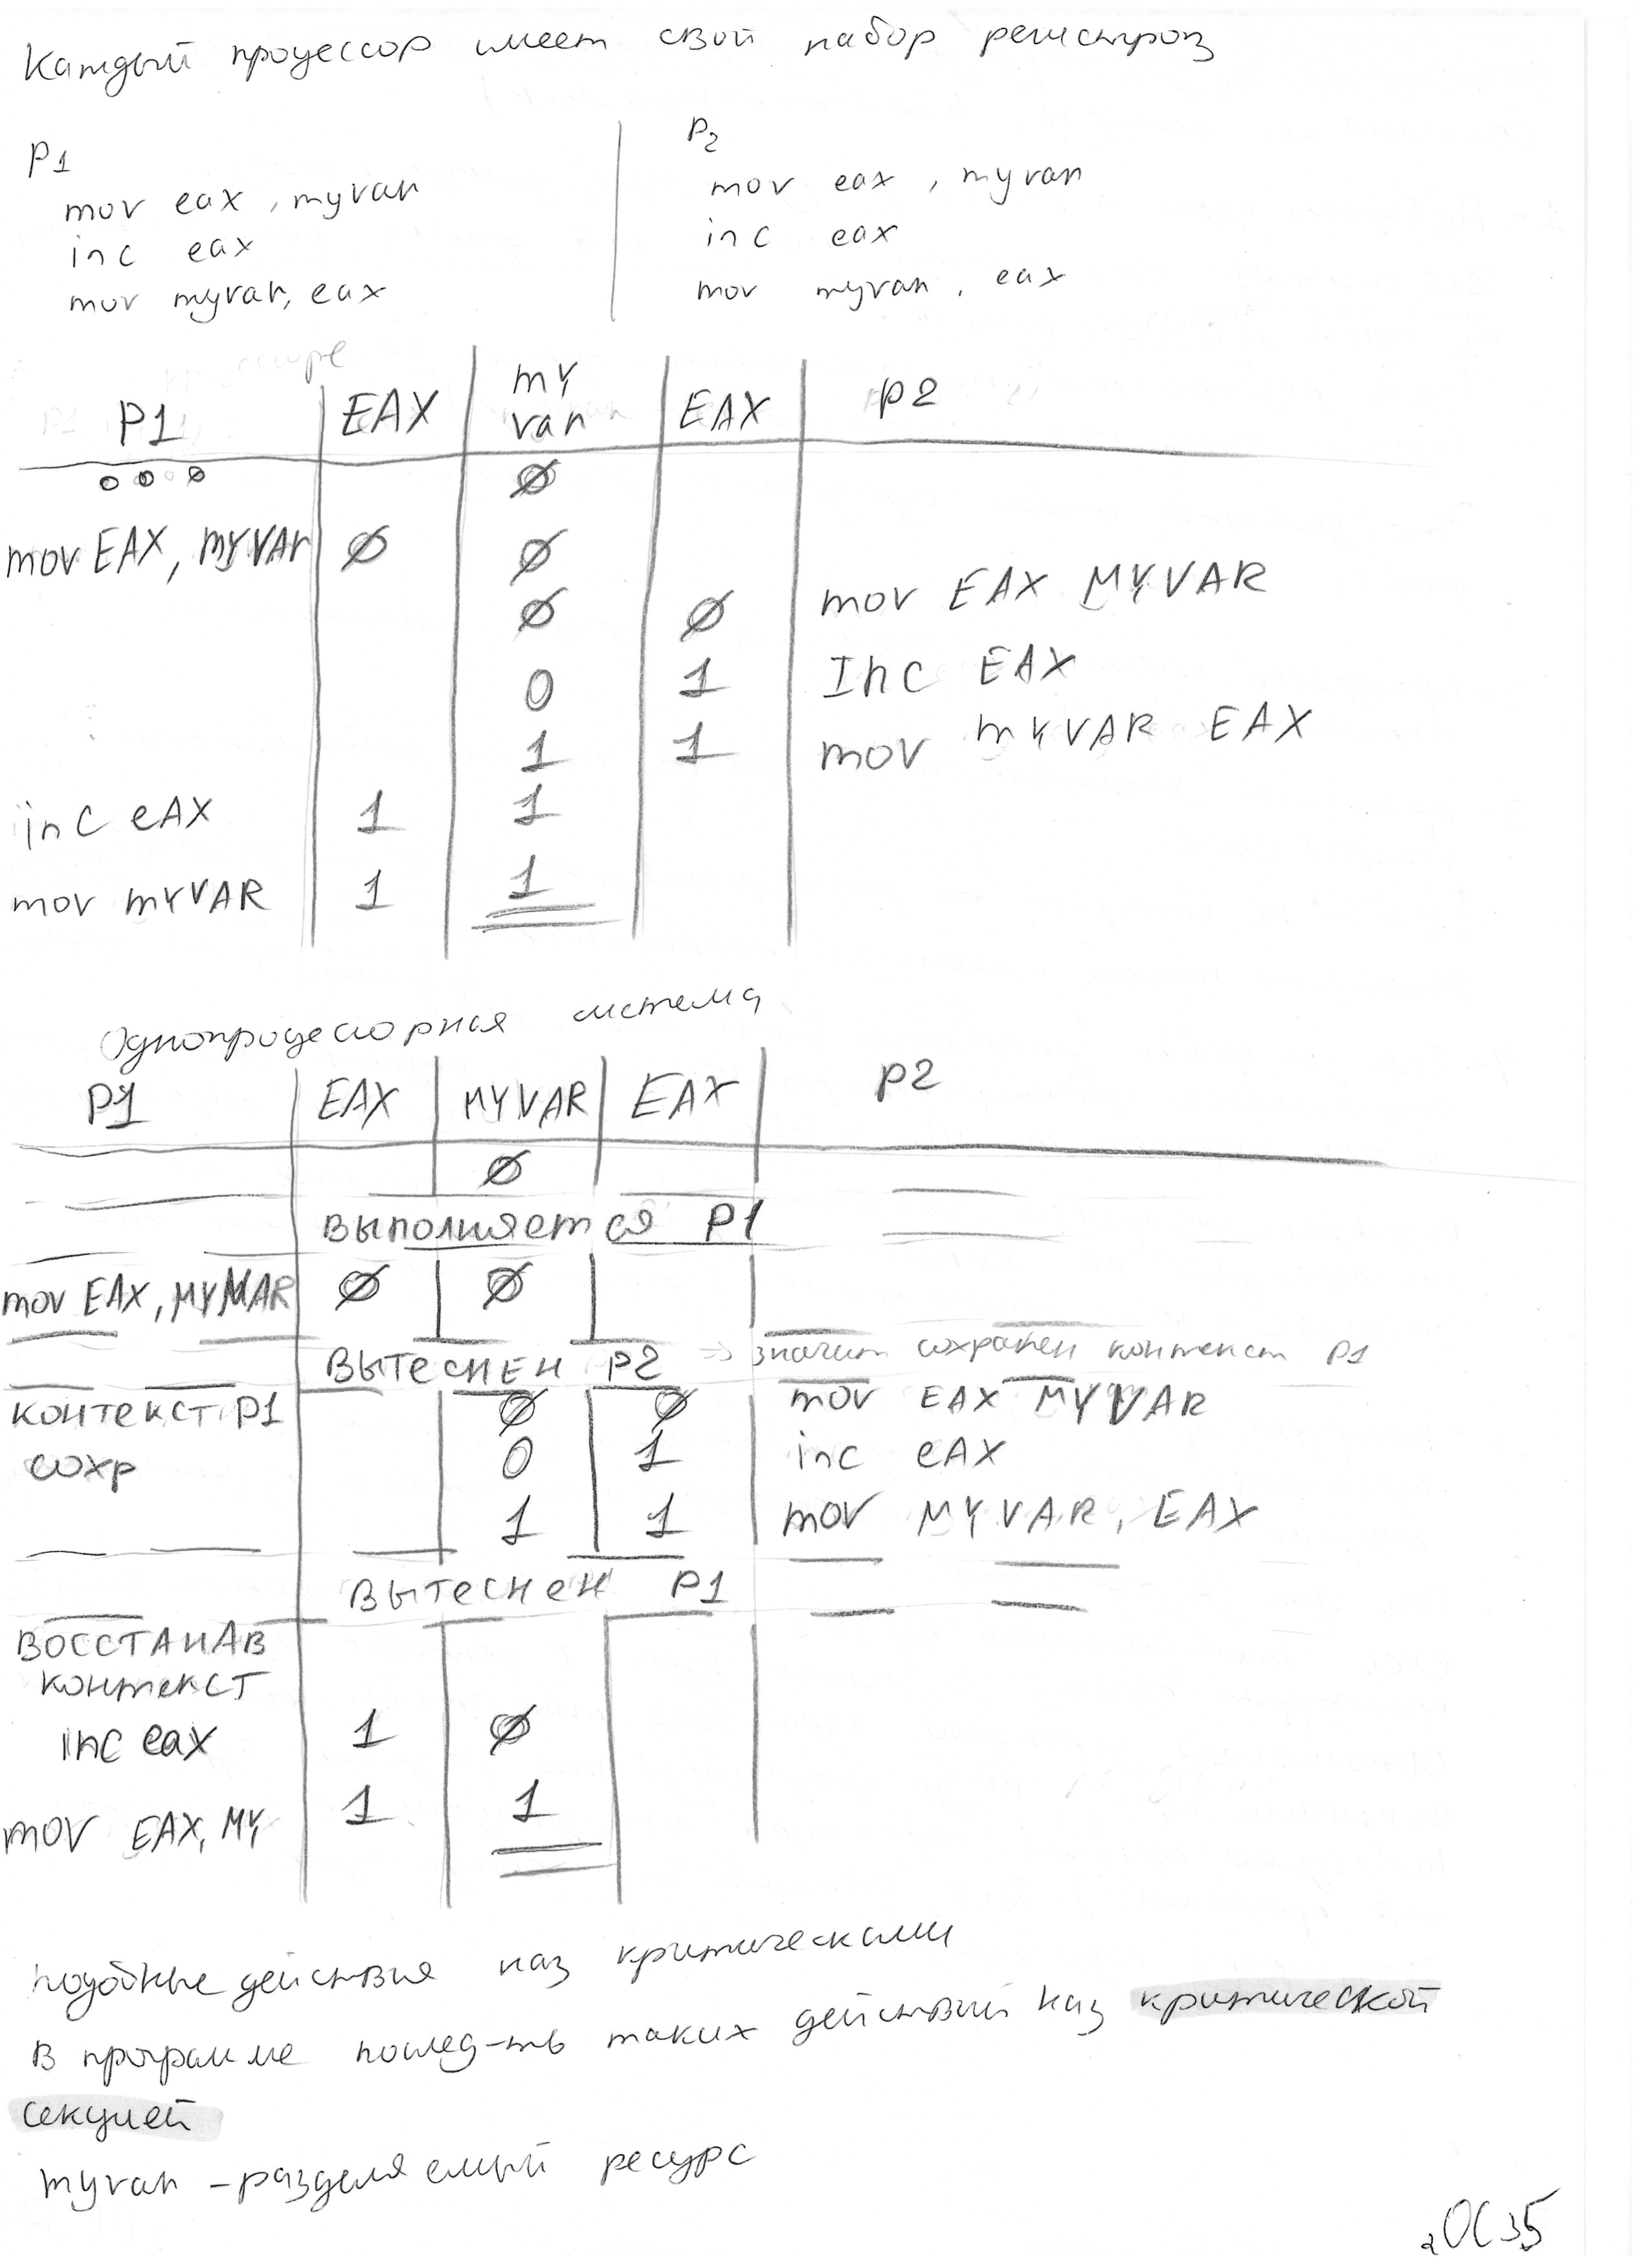 Каждый процессор имеет свой набор регистров
P1
P2
mov eax, myvar
mov eax, myvar
inc eax
inc eax
mov myvar, eax
mov myvar, eax
P1 EAX my var EAX P2
∅
mov EAX, MYVAr ∅ ∅
∅ ∅ mov EAX MYVAR
0 1 Inc EAX
1 1 mov MYVAR EAX
inc eAX 1 1
mov MYVAR 1 1
Однопроцессорная система
P1 EAX MYVAR EAX P2
∅
выполняется P1
mov EAX, MYVAR ∅ ∅
вытеснен P2 → значит сохранен контекст P1
контекст P1 ∅ ∅ mov EAX MYVAR
сохр 0 1 inc eAX
1 1 mov MYVAR, EAX
вытеснен P1
восстанав
контекст
inc eax 1 ∅
mov EAX, MY 1 1
подобные действия наз критическими
В программе послед-ть таких действий наз критической
секцией
myvar - разделяемый ресурс
ОС 35